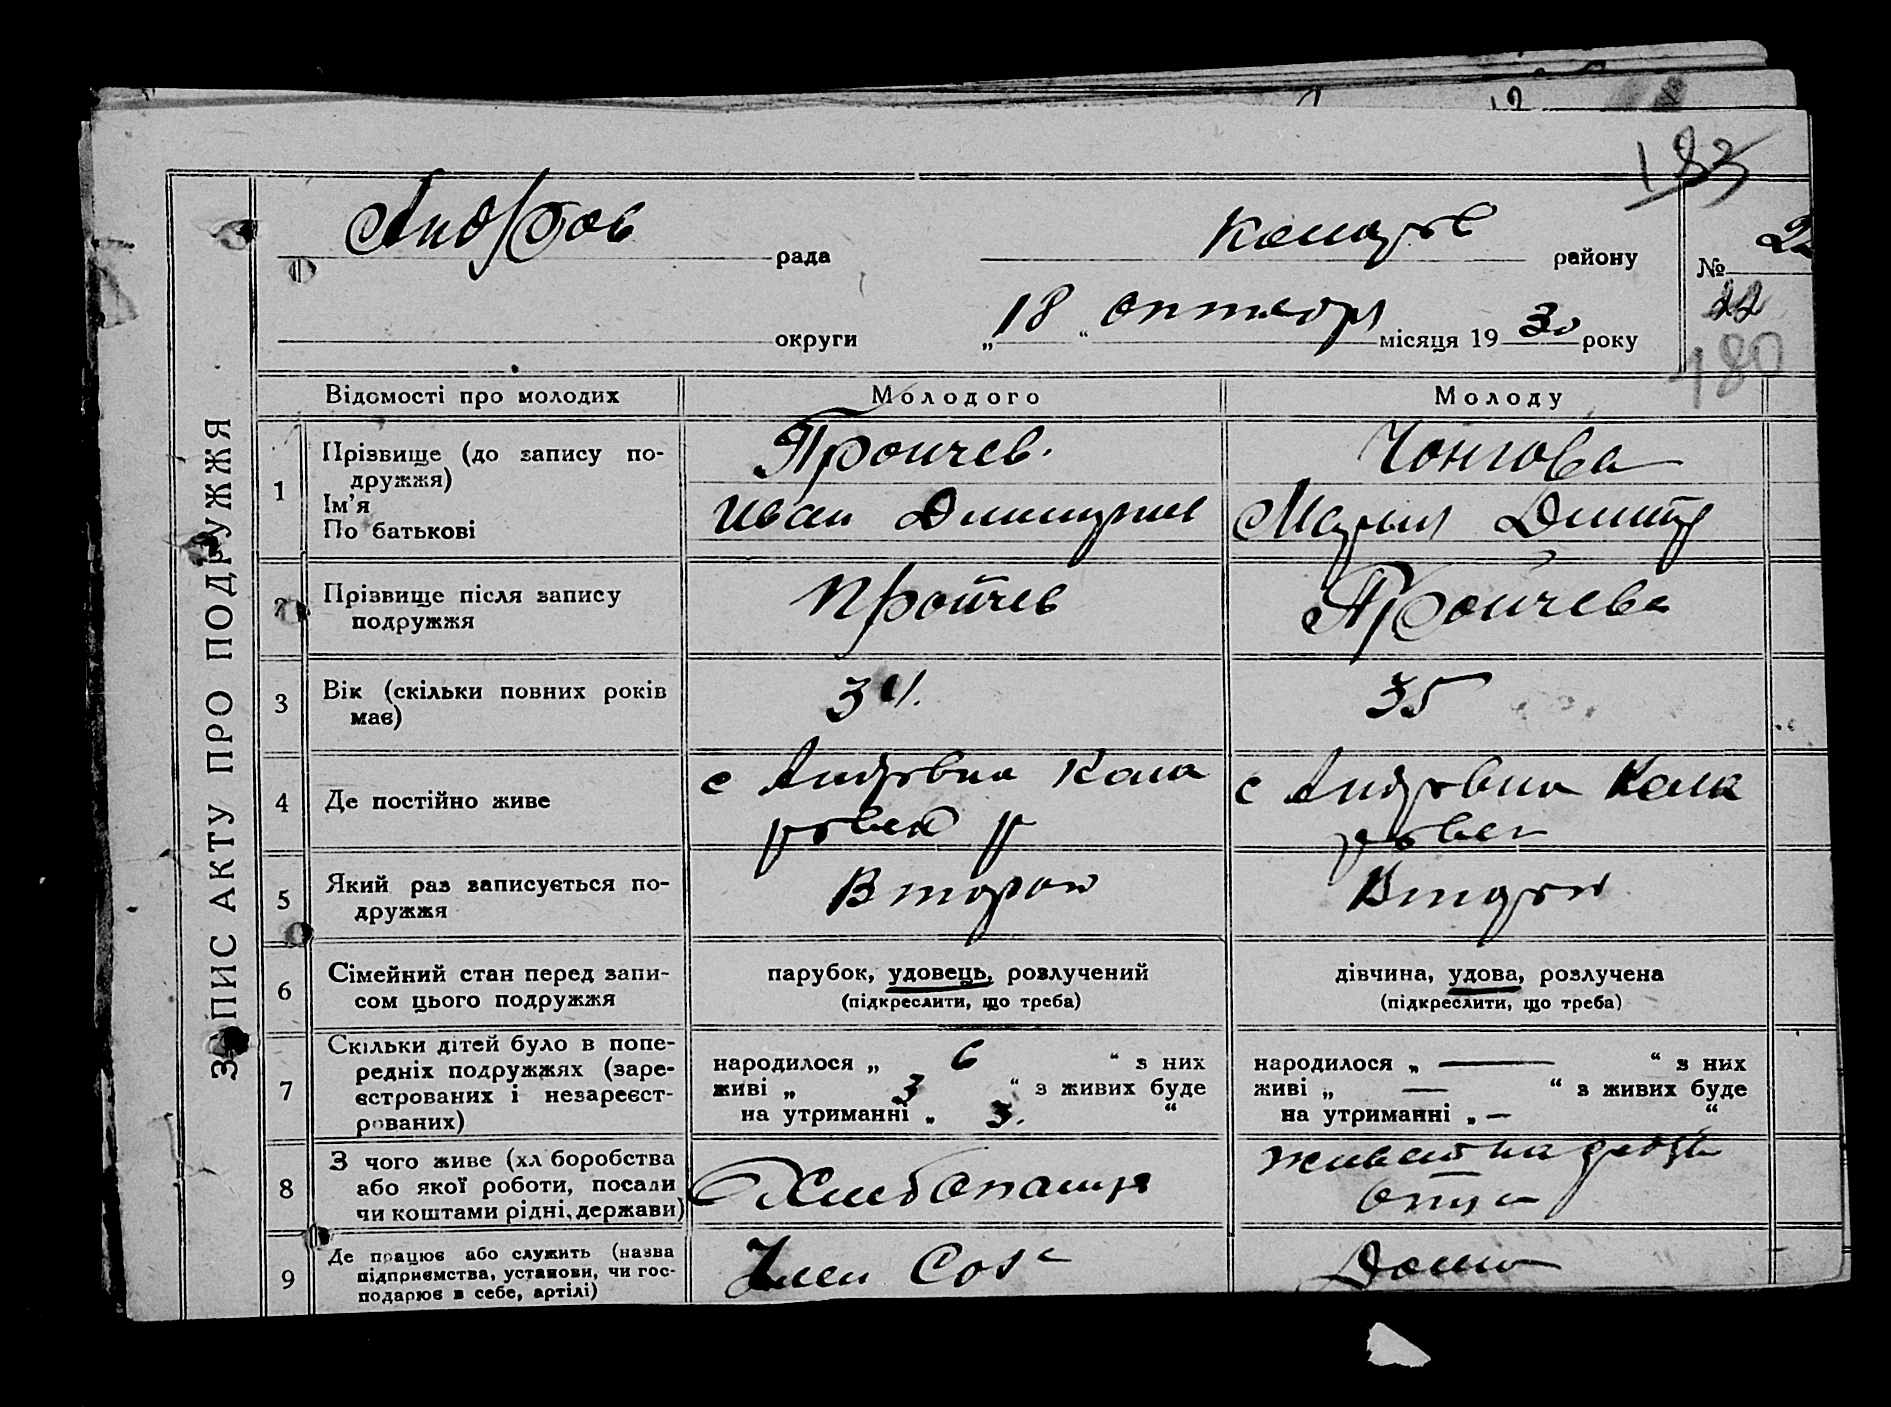 183
Андров рада Колар в району № 22
22
округи „18“ октября місяця 1930 року
180
ЗАПИС АКТУ ПРО ПОДРУЖЖЯ
Відомості про молодих Молодого Молоду
1 Прізвище (до запису по-
дружжя)
Ім'я
По батькові
Пройчев.
Иван Димитриев
Чонгова
Мария Димитр
2 Прізвище після запису
подружжя
Пройчев
Пройчева
3 Вік (скільки повних років
має)
34.
35
4 Де постійно живе
с Андровка Кола
ровск р
с Андровка Кола
ровск
5 Який раз записується по-
дружжя
Второй
Второй
6 Сімейний стан перед запи-
сом цього подружжя
парубок, удовець, розлучений
(підкреслити, що треба)
дівчина, удова, розлучена
(підкреслити, що треба)
7 Скільки дітей було в попе-
редніх подружжях (заре-
єстрованих і незареєст-
рованих)
народилося „ 6 “ з них
живі „ 3 “ з живих буде
на утриманні „ 3. “
народилося „ — “ з них
живі „ — “ з живих буде
на утриманні „ — “
8 З чого живе (хліборобства
або якої роботи, посади
чи коштами рідні, держави)
Хлебопашця
живет на средств
отца
9 Де працює або служить (назва
підприємства, установи, чи гос-
подарює в себе, артілі)
Член Соз
Дома